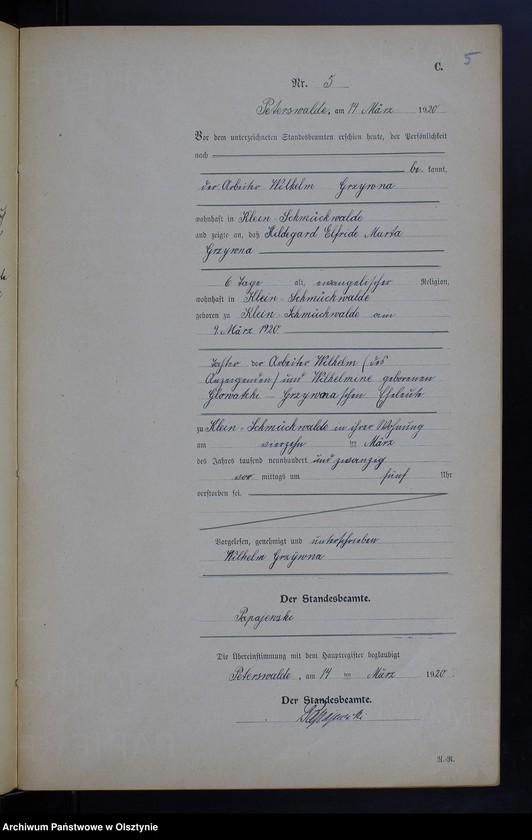 C.
5
Nr. 5
Peterswalde, am 14 März 1920
Vor dem unterzeichneten Standesbeamten erschien heute, der Persönlichkeit
nach
be kannt,
der Arbeiter Wilhelm Grzywna
wohnhaft in Klein-Schmückwalde
und zeigte an, daß Hildegard Elfride Marta
Grzywna
6 Tage alt, evangelischer Religion,
wohnhaft in Klein-Schmückwalde
geboren zu Klein-Schmückwalde am
9. März 1920
Tochter der Arbeiter Wilhelm (des
Anzeigenden) und Wilhelmine geborenen
Glowatzki - Grzywna'schen Eheleute
zu Klein-Schmückwalde in ihrer Wohnung
am vierzehn ten März
des Jahres tausend neunhundert und zwanzig
vor mittags um fünf Uhr
verstorben sei.
Vorgelesen, genehmigt und unterschrieben
Wilhelm Grzywna
Der Standesbeamte.
Papajewski
Die Übereinstimmung mit dem Hauptregister beglaubigt
Peterswalde, am 14 ten März 1920.
Der Standesbeamte.
Archiwum Państwowe w Olsztynie